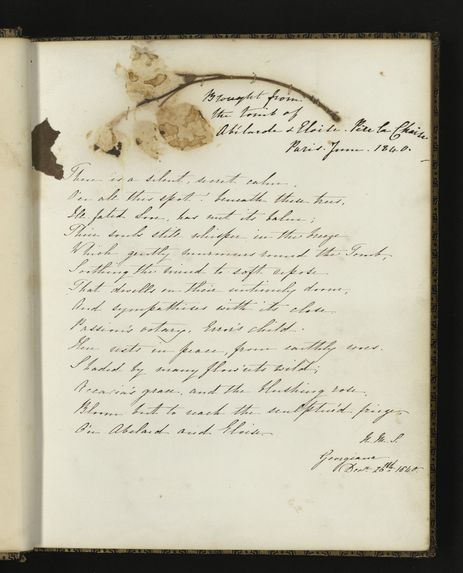 Brought from
the tomb of
Abélarde & Eloise. Père la Chaise
Paris. June. 1840.
There is a silent, secret calm,
O'er all this spot! beneath these trees,
Ill fated Love, has not its balm;
Their souls still whisper in the breeze
Which gently murmurs round the Tomb,
Soothing the mind to soft repose
That dwells on their untimely doom,
And sympathises with its close.
Passion's votary, Error's child.
Here rests in peace, from earthly woes.
Shaded by many flow'rets wild;
Accacia's grace, and the blushing rose,
Bloom but to reach the sculptur'd fringe
O'er Abelard and Eloise
H. M. S.
Georgeana
Decr. 26th 1840.